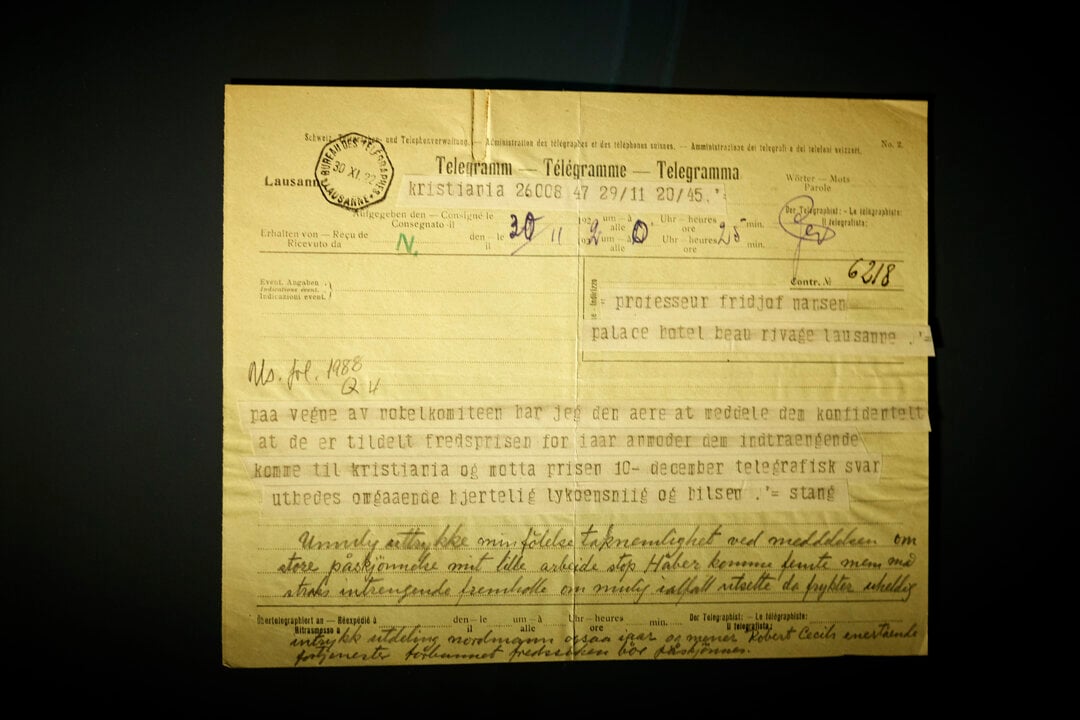 Schweiz. Telegraphen- und Telephonverwaltung. — Administration des télégraphes et des téléphones suisses. — Amministrazione dei telegrafi e dei telefoni svizzeri.
No. 2.
BUREAU DES TÉLÉGRAPHES
30 XI. 22
LAUSANNE
Lausanne
Telegramm — Télégramme — Telegramma
Wörter — Mots
Parole
kristiania 26008 47 29/11 20/45 .'=
Aufgegeben den — Consigné le
Consegnato il
192
um — à
alle
Uhr — heures
ore
min.
Der Telegraphist: — Le télégraphiste:
Il telegrafista:
Erhalten von — Reçu de
Ricevuto da
N.
den — le
il
30/11
192
um — à
alle
0
Uhr — heures
ore
25
min.
Event. Angaben
Indications évent.
Indicazioni event.
Contr. №
6218
professeur fridjof nansen
palace hotel beau rivage lausanne .'=
Ms. fol. 1988
Q 4
paa vegne av nobelkomiteen har jeg den aere at meddele dem konfidentelt
at de er tildelt fredsprisen for iaar anmoder dem indtraengende
komme til kristiania og motta prisen 10- december telegrafisk svar
utbedes omgaaende hjertelig lykoensniig og hilsen .'= stang
uttrykke min følelse taknemlighet ved meddelelsen om
store påskjønnelse mit lille arbeide stop Håber komme femte men må
straks intrengende fremholde om mulig ialfall utsette da frykter uheldig
Übertelegraphiert an — Réexpédié à
Ritrasmesso a
den — le
il
um — à
alle
Uhr — heures
ore
min.
Der Telegraphist: — Le télégraphiste:
Il telegrafista:
intrykk utdeling nordmann ogsaa iaar og mener Robert Cecils enestående
fortjenester forbunnet fredssaken bør påskjønnes.